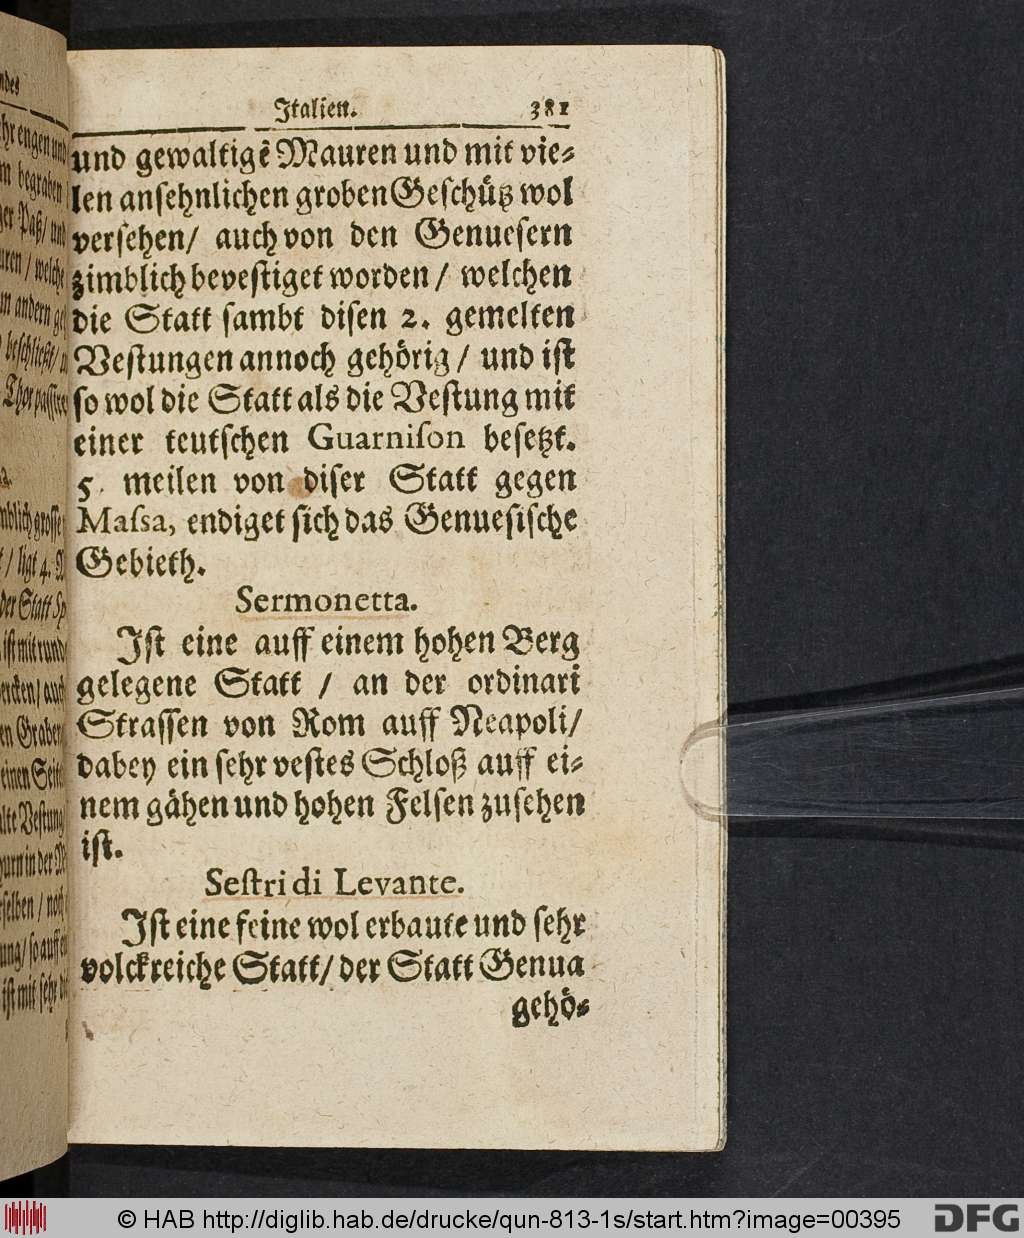 Italien. 381
und gewaltigẽ Mauren und mit vie-
len ansehnlichen groben Geschütz wol
versehen/ auch von den Genuesern
zimblich bevestiget worden / welchen
die Statt sambt disen 2. gemelten
Vestungen annoch gehörig / und ist
so wol die Statt als die Vestung mit
einer teutschen Guarnison besetzt.
5. meilen von diser Statt gegen
Massa, endiget sich das Genuesische
Gebieth.
Sermonetta.
Ist eine auff einem hohen Berg
gelegene Statt / an der ordinari
Strassen von Rom auff Neapoli/
dabey ein sehr vestes Schloß auff ei-
nem gähen und hohen Felsen zusehen
ist.
Sestri di Levante.
Ist eine feine wol erbaute und sehr
volckreiche Statt/ der Statt Genua
gehö-
© HAB http://diglib.hab.de/drucke/qun-813-1s/start.htm?image=00395 DFG